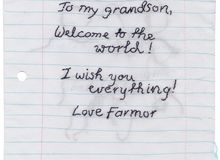 To my grandson,
Welcome to the
world!
I wish you
everything!
Love Farmor